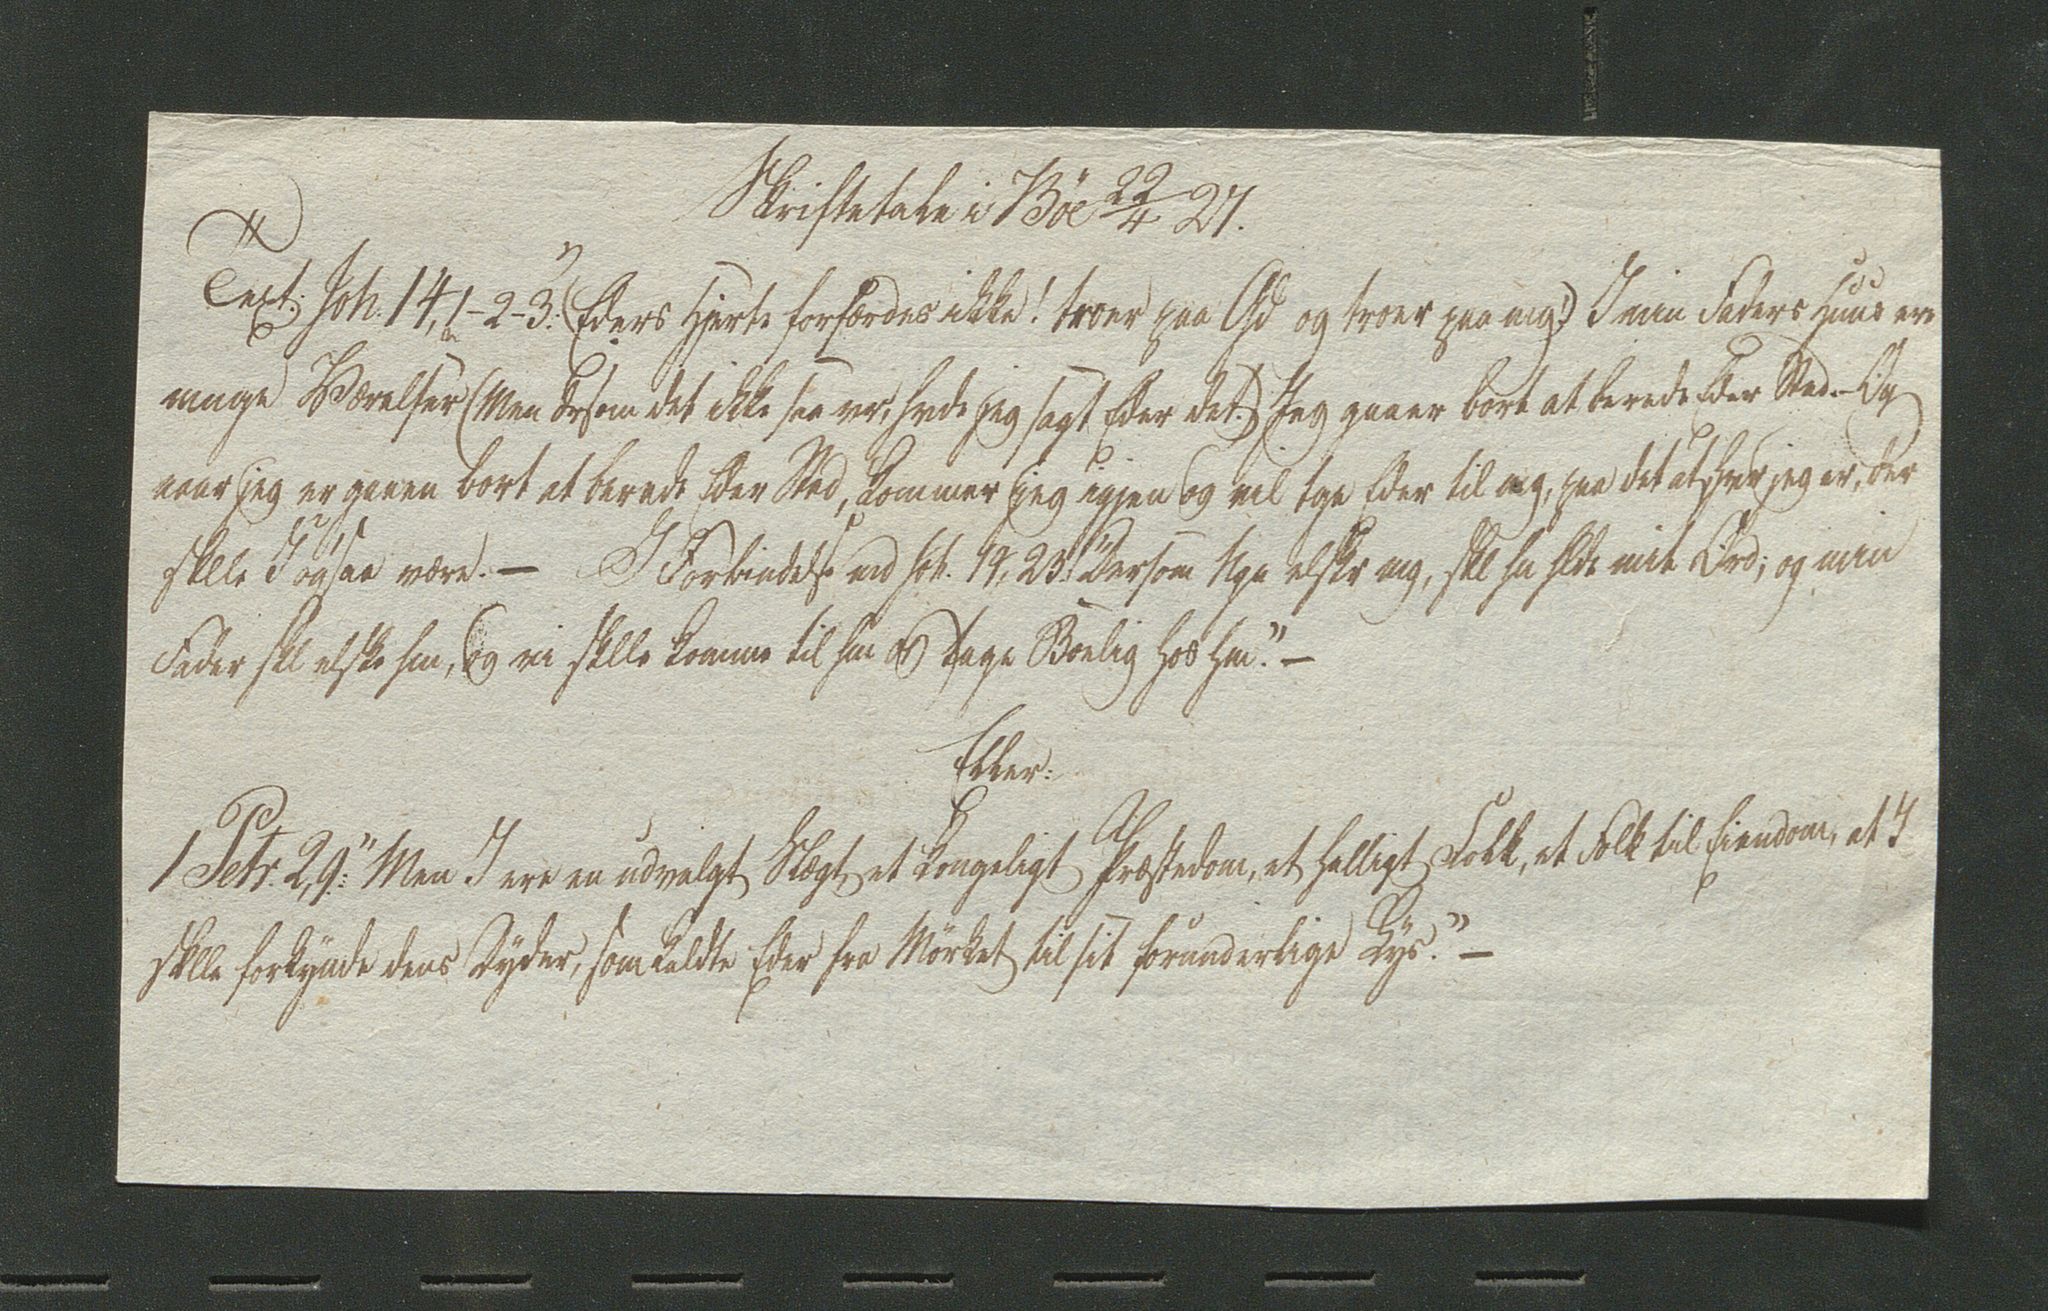 Skriftetale i Böe 22/4 27.
Text: Joh. 14, 1-2-3: "(Eders Hjerte forfærdes ikke! troer paa Gd og troer paa mig!) I min Faders Huus ere
mange Værelser (Men dersom det ikke saa vr, hvde jeg sagt Eder det.) Jeg gaaer bort at berede Eder Sted. - Og
naar jeg er gaaen bort at berede Eder Sted, kommer jeg igjen og vil tge Eder til mig, paa det at hvr jeg er, der
sklle I ogsaa være. - I Forbindelse md Joh. 14, 23: "Dersom Ngn elskr mig, skl hn hlde mit Ord; og min
Fader skl elske hm, og vi sklle komme til hm og tage Boelig hos hm." -
Eller:
1 Petr. 2,9: "Men I ere en udvalgt Slægt, et kongeligt Præstedom, et helligt Folk, et Folk til Eiendom, at I
sklle forkynde dens Dyder, som kaldte Eder fra Mörket til sit forunderlige Lys." -